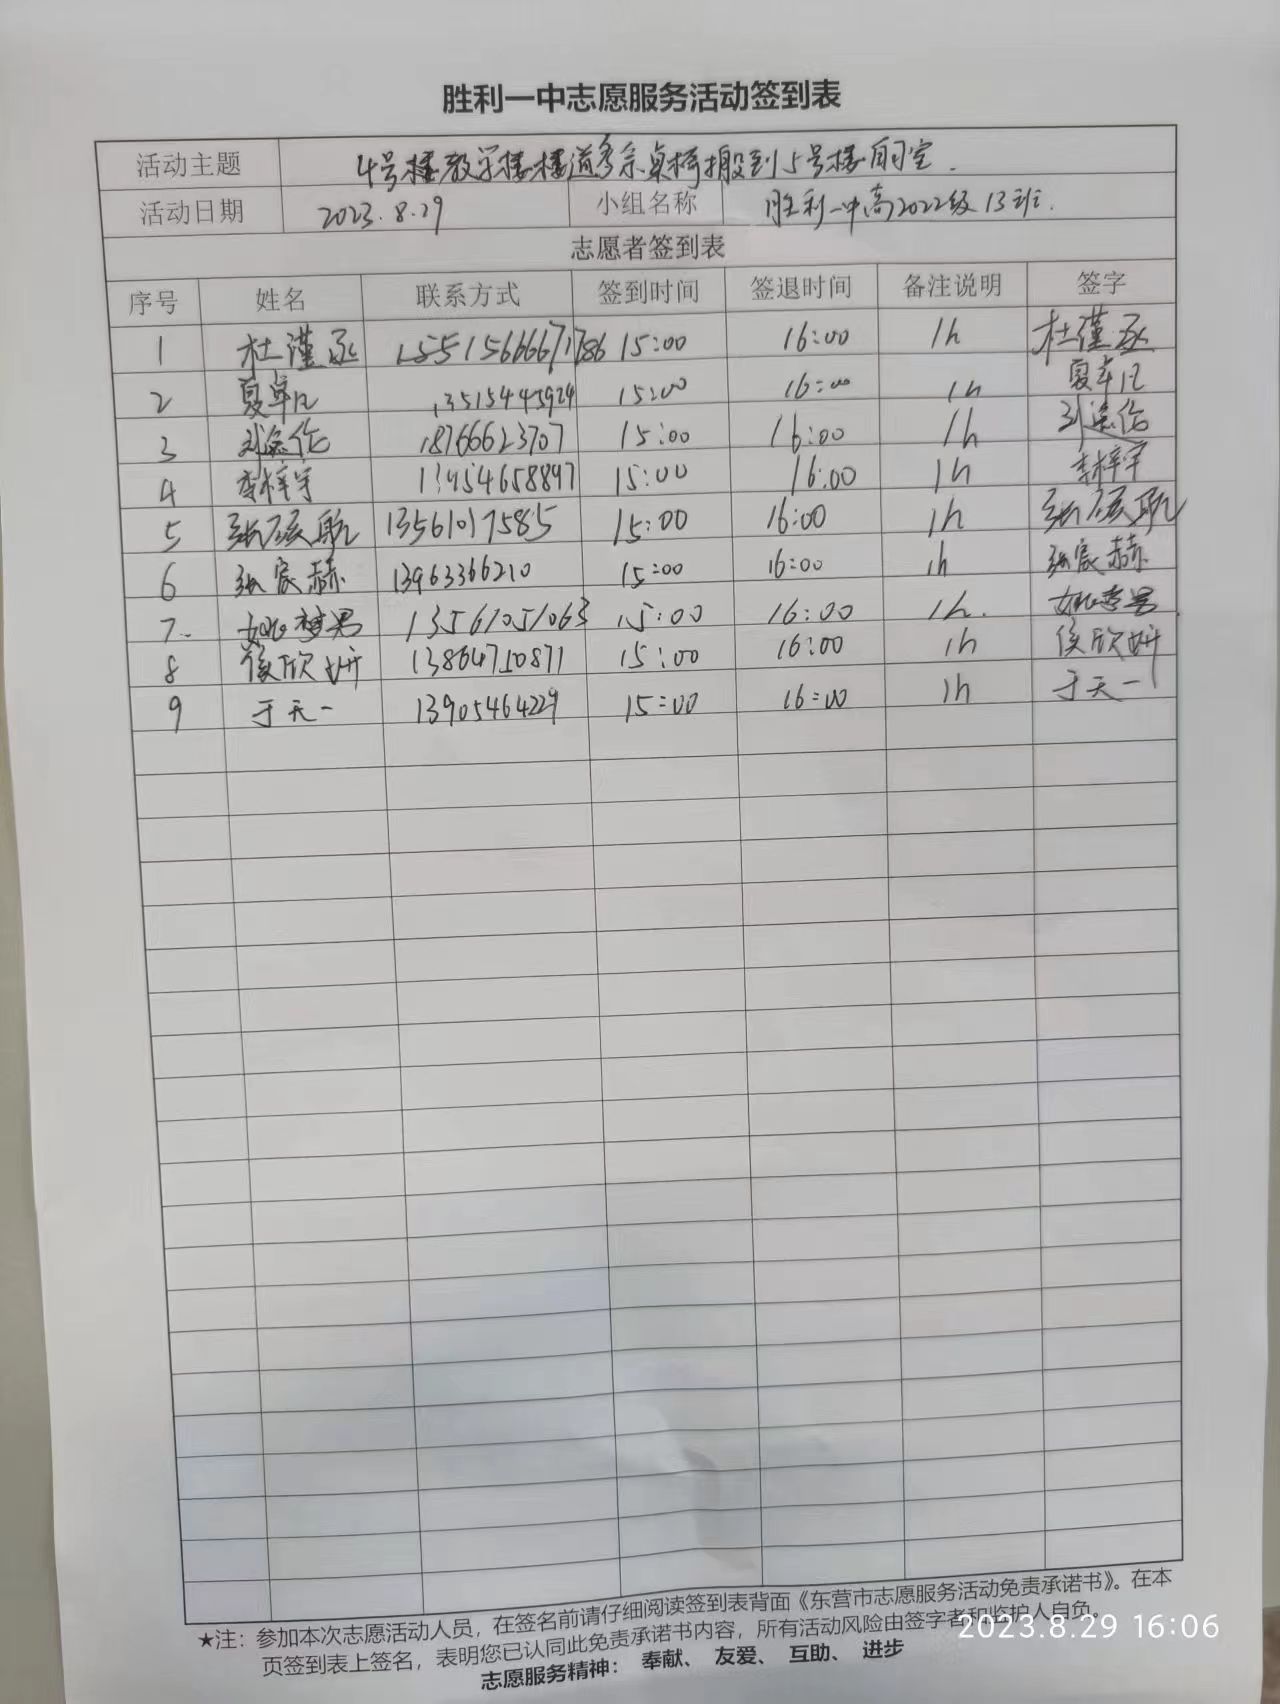 胜利一中志愿服务活动签到表
活动主题 4号楼教学楼楼道多余桌椅搬到5号楼自习室.
活动日期 2023.8.29 小组名称 胜利一中高2022级13班.
志愿者签到表
序号 姓名 联系方式 签到时间 签退时间 备注说明 签字
1 杜谨丞 15:00 16:00 1h 杜谨丞
2 夏卓凡 13515445924 15:00 16:00 1h 夏卓凡
3 18766623707 15:00 16:00 1h
4 李梓宇 15:00 16:00 1h 李梓宇
5 13561017585 15:00 16:00 1h
6 张宸赫 13963366210 15:00 16:00 1h 张宸赫
7. 姚梦男 13561051063 15:00 16:00 1h. 姚梦男
8 侯欣妍 13864710871 15:00 16:00 1h 侯欣妍
9 于天一 13905464229 15:00 16:00 1h 于天一
★注：参加本次志愿活动人员，在签名前请仔细阅读签到表背面《东营市志愿服务活动免责承诺书》。在本
页签到表上签名，表明您已认同此免责承诺书内容，所有活动风险由签字者和监护人自负。
志愿服务精神： 奉献、 友爱、 互助、 进步
2023.8.29 16:06